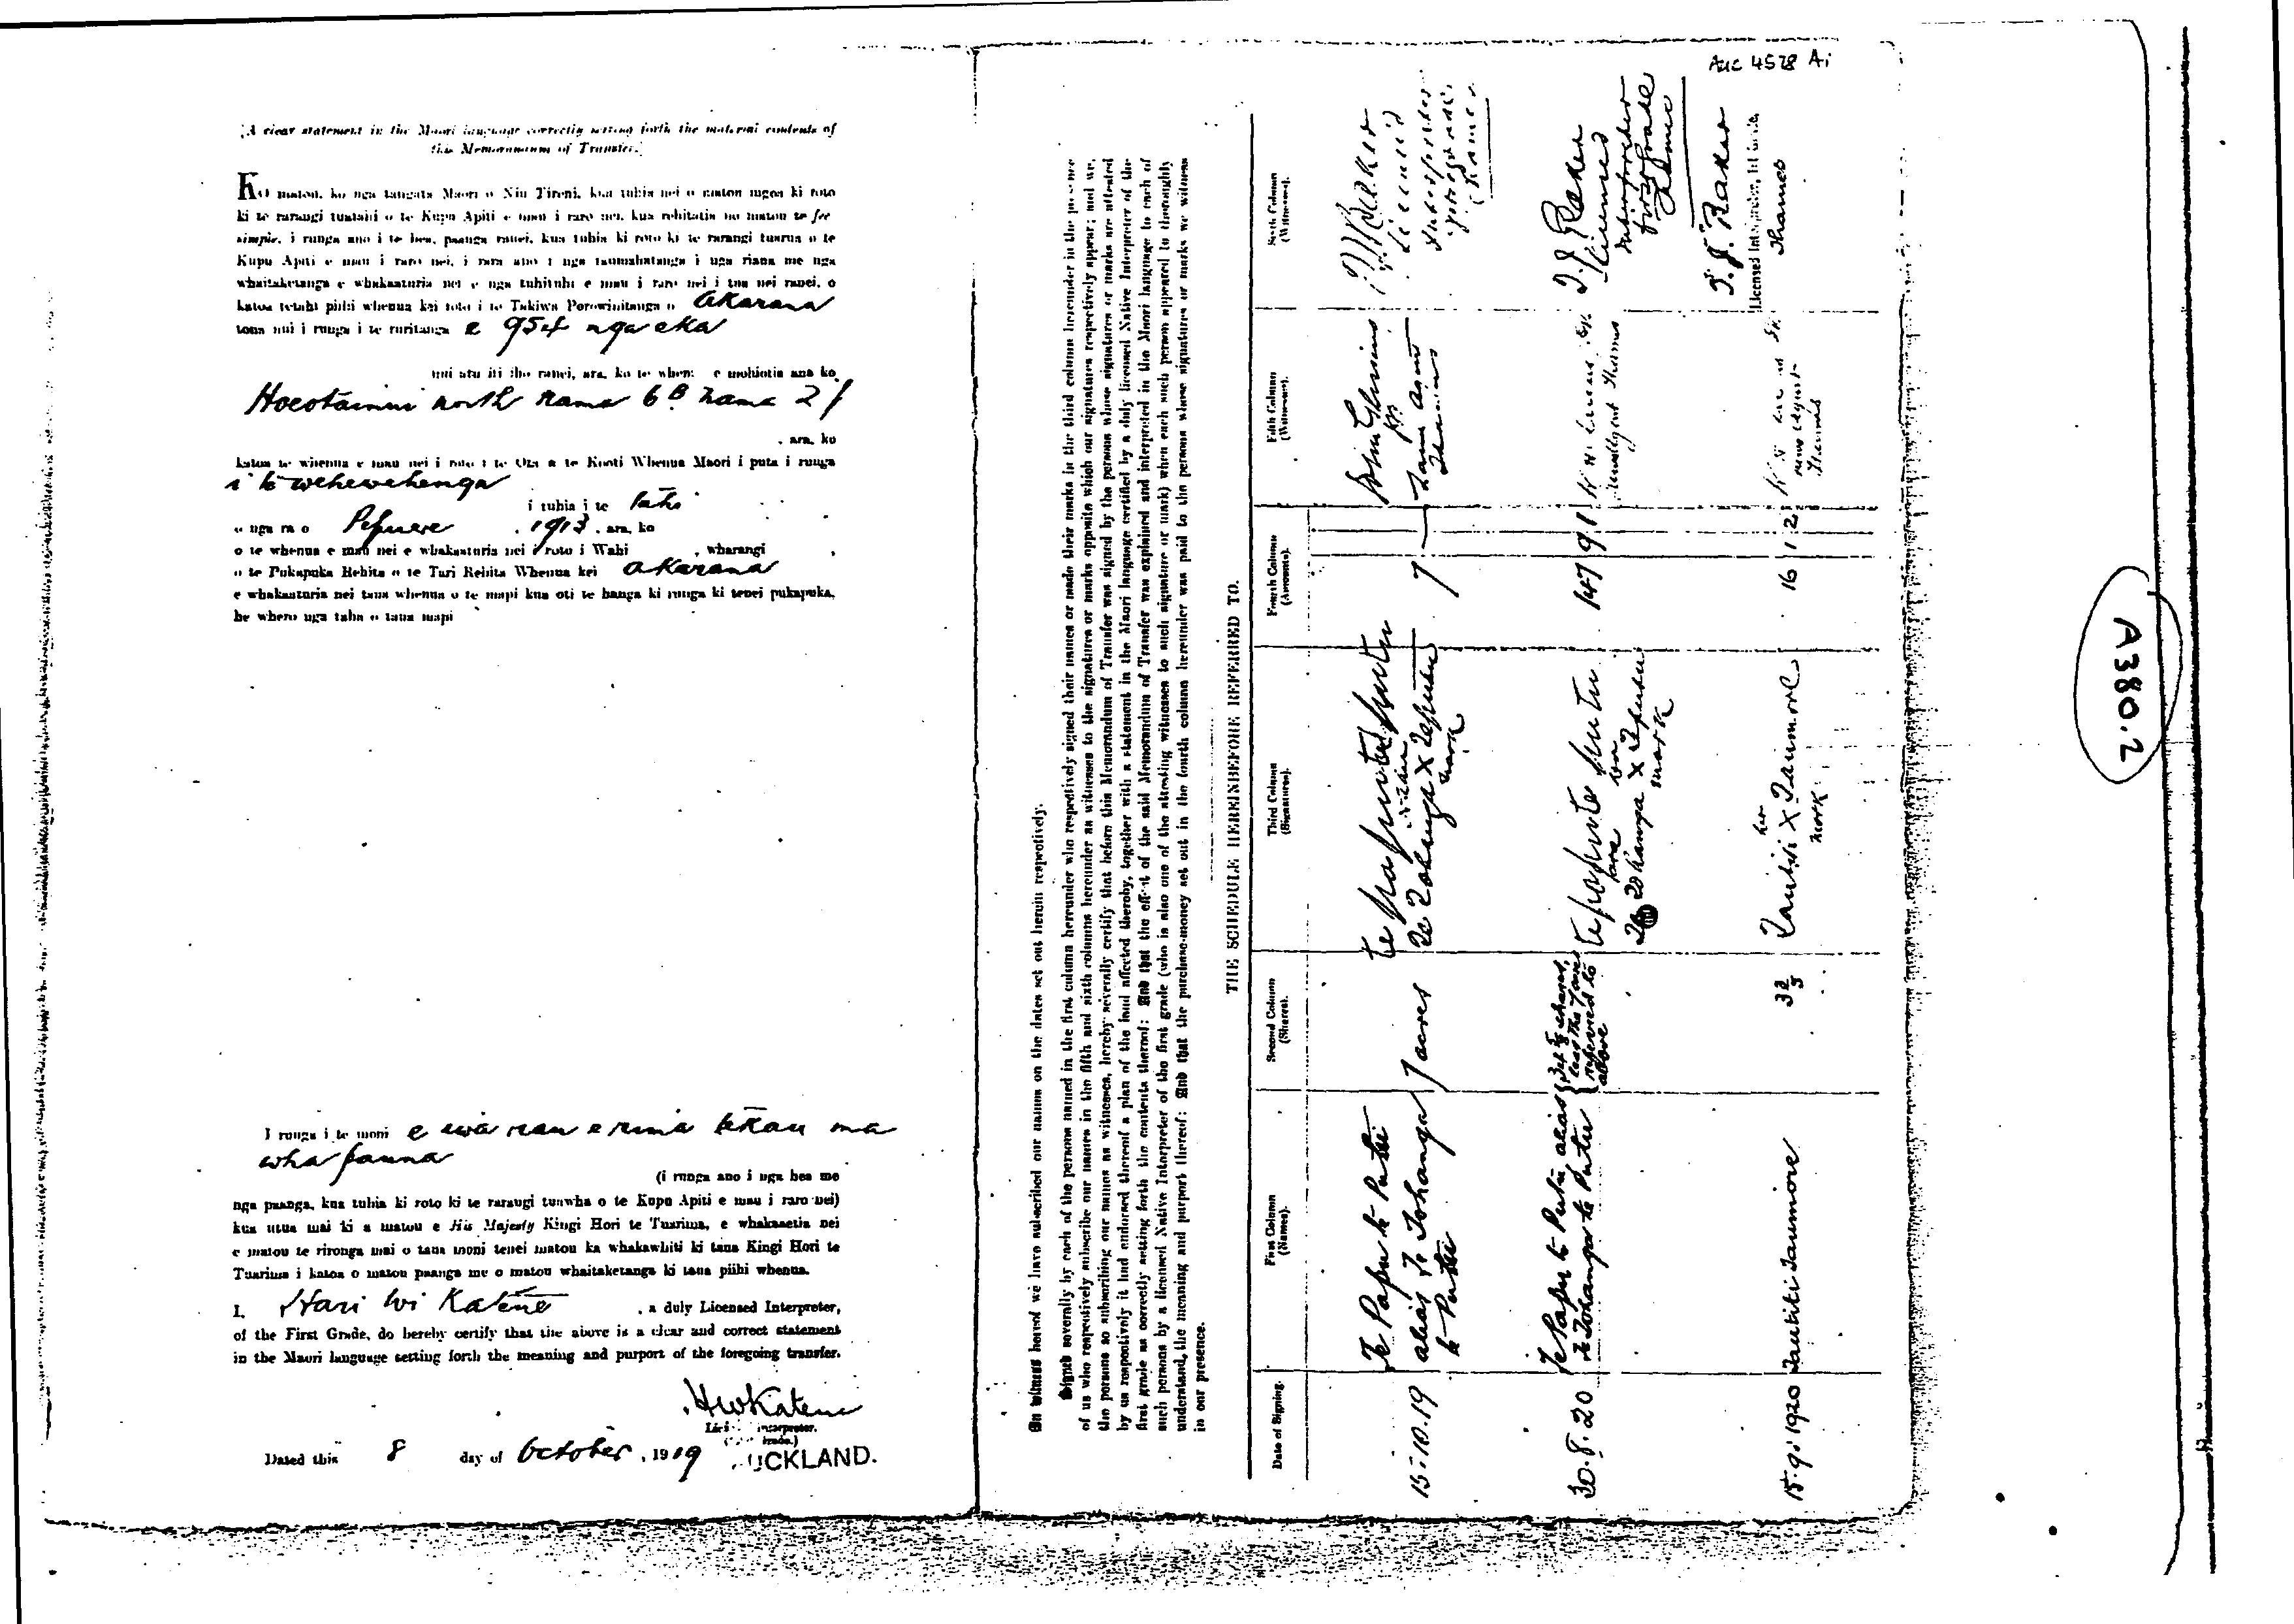 [A clear statement in the Maori language correctly setting forth the material contents of
this Memorandum of Transfer.]
Ko matou, ko nga tangata Maori o Niu Tireni, kua tuhia nei o matou ingoa ki roto
ki te rarangi tuatahi o te Kupu Apiti e mau i raro nei, kua rehitatia no matou te fee
simple, i runga ano i te hea, paanga ranei, kua tuhia ki roto ki te rarangi tuarua o te
Kupu Apiti e mau i raro nei, i raro ano i nga taumahatanga i nga riana me nga
whaitaketanga e whakaaturia nei e nga tuhituhi e mau i raro nei i tua nei ranei, o
katoa tetahi piihi whenua kei roto i te Takiwa Porowinitanga o Akarana
tona nui i runga i te ruritanga e 954 nga eka
nui atu iti iho ranei, ara, ko te whenua e mohiotia ana ko
Hoeotainui north nama 6B nama 2
, ara, ko
katoa te whenua e mau nei i roto i te Ota a te Kooti Whenua Maori i puta i runga
i te wehewehenga
i tuhia i te tahi
o nga ra o Pepuere , 1913 , ara, ko
o te whenua e mau nei e whakaaturia nei i roto i Wahi , wharangi ,
o te Pukapuka Rehita o te Tari Rehita Whenua kei Akarana
e whakaaturia nei taua whenua o te mapi kua oti te hanga ki runga ki tenei pukapuka,
he whero nga taha o taua mapi
I runga i te moni e iwa rau e rima tekau ma
wha pauna
(i runga ano i nga hea me
nga paanga, kua tuhia ki roto ki te rarangi tuawha o te Kupu Apiti e mau i raro nei)
kua utua mai ki a matou e His Majesty Kingi Hori te Tuarima, e whakaaetia nei
e matou te rironga mai o taua moni tenei matou ka whakawhiti ki taua Kingi Hori te
Tuarima i katoa o matou paanga me o matou whaitaketanga ki taua piihi whenua.
I, Hari Wi Katene , a duly Licensed Interpreter,
of the First Grade, do hereby certify that the above is a clear and correct statement
in the Maori language setting forth the meaning and purport of the foregoing transfer.
HWKatene
Interpreter.
Dated this 8 day of October , 1919
AUCKLAND.
In witness hereof we have subscribed our names on the dates set out herein respectively.
Signed severally by each of the persons named in the first column hereunder who respectively signed their names or made their marks in the third column hereunder in the presence
of us who respectively subscribe our names in the fifth and sixth columns hereunder as witnesses to the signatures or marks opposite which our signatures respectively appear; and we,
the persons so subscribing our names as witnesses, hereby severally certify that before this Memorandum of Transfer was signed by the persons whose signatures or marks are attested
by us respectively it had endorsed thereon a plan of the land affected thereby, together with a statement in the Maori language certified by a duly licensed Native Interpreter of the
first grade as correctly setting forth the contents thereof: And that the effect of the said Memorandum of Transfer was explained and interpreted in the Maori language to each of
such persons by a licensed Native Interpreter of the first grade (who is also one of the attesting witnesses to such signature or mark) when each such person appeared to thoroughly
understand the meaning and purport thereof: And that the purchase-money set out in the fourth column hereunder was paid to the persons whose signatures or marks we witness
in our presence.
THE SCHEDULE HEREINBEFORE REFERRED TO.
Date of Signing. First Column (Names). Second Column (Shares). Third Column (Signatures). Fourth Column (Amounts). Fifth Column (Witnesses). Sixth Column (Witnesses).
15.10.19 Te Papu te Putu 7 acres te paputeputu 7
alias Te Tohanga X mark
te Putu
Licensed
Interpreter
first grade
Thames
30.8.20 Te Papu te Putu alias 34 shares, te papute putu 147 9 1 T. J. Baker
Te Tohanga te Putu less the 7 acres X Licensed
referred to mark Interpreter
above first grade
Thames
15.9.1920 Tautiti Taumore 3 Tautiti X Taumore 16 1 2 T. J. Baker
her mark Licensed Interpreter, 1st Grade,
Thames
AUC 4578 Ai
A380.2